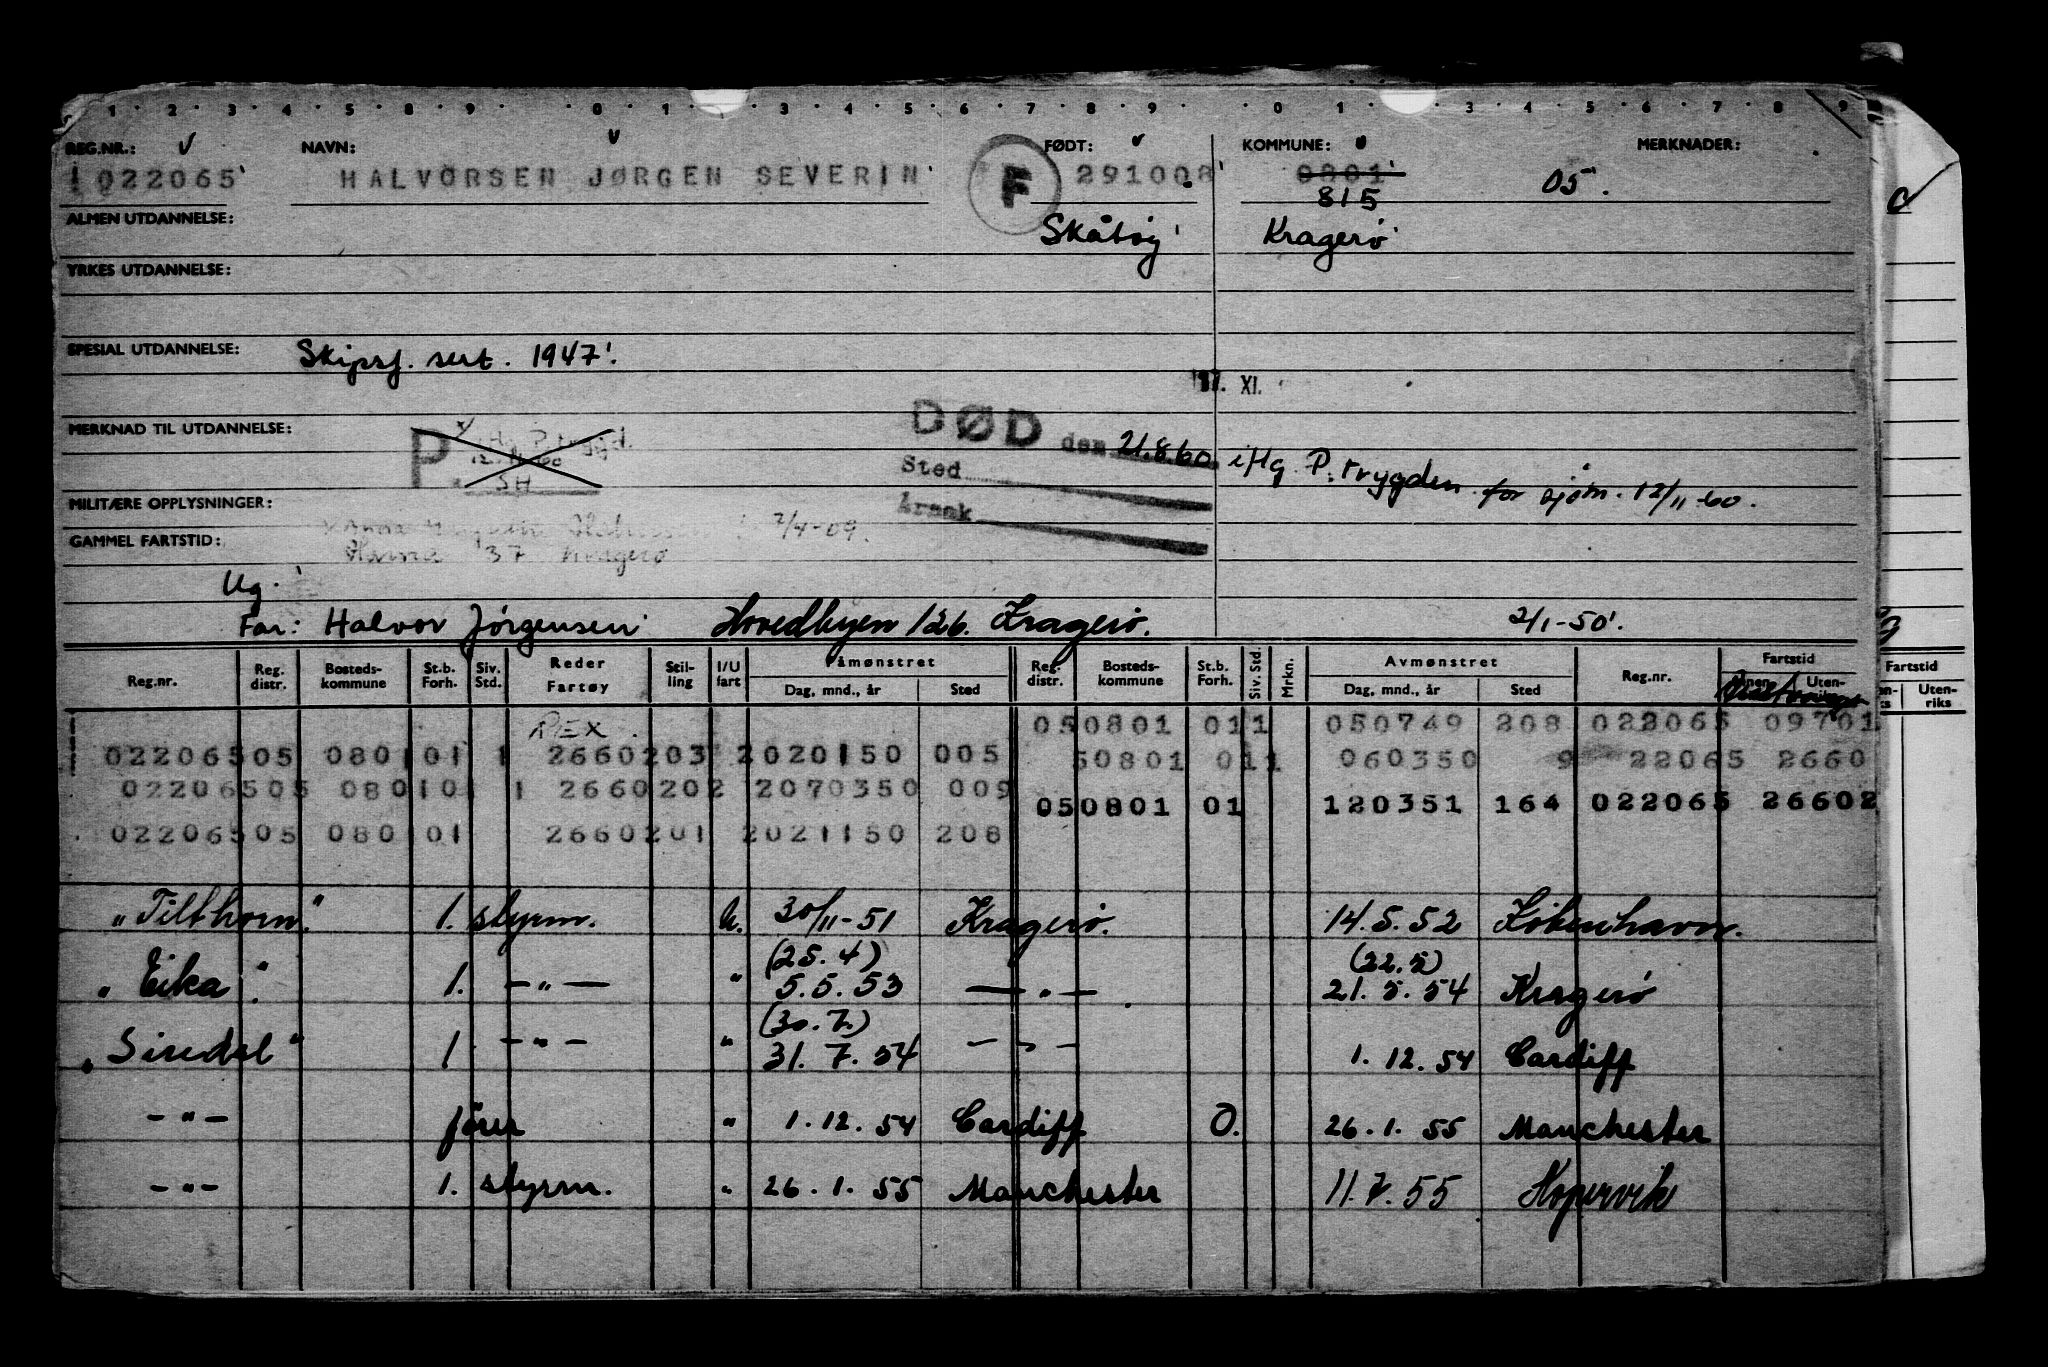 1 2 3 4 5 8 9 0 1 3 4 5 6 7 8 9 0 1 3 4 5 6 7 8 9
REG.NR.: NAVN: FØDT: KOMMUNE: MERKNADER:
1022065 HALVORSEN JØRGEN SEVERIN F 291008 0801 05.
815
ALMEN UTDANNELSE: Skåtøy Kragerø
YRKES UTDANNELSE:
SPESIAL UTDANNELSE: Skipsf. sert. 1947.
17. XI.
MERKNAD TIL UTDANNELSE: P DØD den 21.8.60 i flg P. trygden for sjøm. 12/11-60.
SH
Sted
MILITÆRE OPPLYSNINGER:
Årsak
GAMMEL FARTSTID: 2/4-09.
'37 Kragerø
Ug.
Far: Halvor Jørgensen Hovedbyen 126. Kragerø. 2/1-50.
Reg.nr. Reg. distr. Bosteds-kommune St.b. Forh. Siv. Std. Reder Fartøy Stil-ling I/U fart Påmønstret Dag, mnd., år Sted Reg. distr. Bosteds-kommune St.b. Forh. Siv. Std. Mrkn. Avmønstret Dag, mnd., år Sted Reg.nr. Fartstid Uten-riks
Fartstid Uten-riks
REX. 050801 011 050749 208 022065 09701
02206505 080101 1 2660203 2020150 005 50801 011 060350 9 22065 2660
02206505 080101 1 2660202 2070350 009 050801 01 120351 164 022065 26602
02206505 080101 2660201 2021150 208
"Tilthorn" 1. styrm. u. 30/11-51 Kragerø. 14.5.52 København.
(25.4) (22.5)
"Eika" 1. -"- " 5.5.53 -"- 21.5.54 Kragerø
(30.7.)
"Siredal" 1 -"- " 31.7.54 -"- 1.12.54 Cardiff
-"- fører " 1.12.54 Cardiff O. 26.1.55 Manchester
-"- 1. styrm. " 26.1.55 Manchester 11.7.55 Kopervik